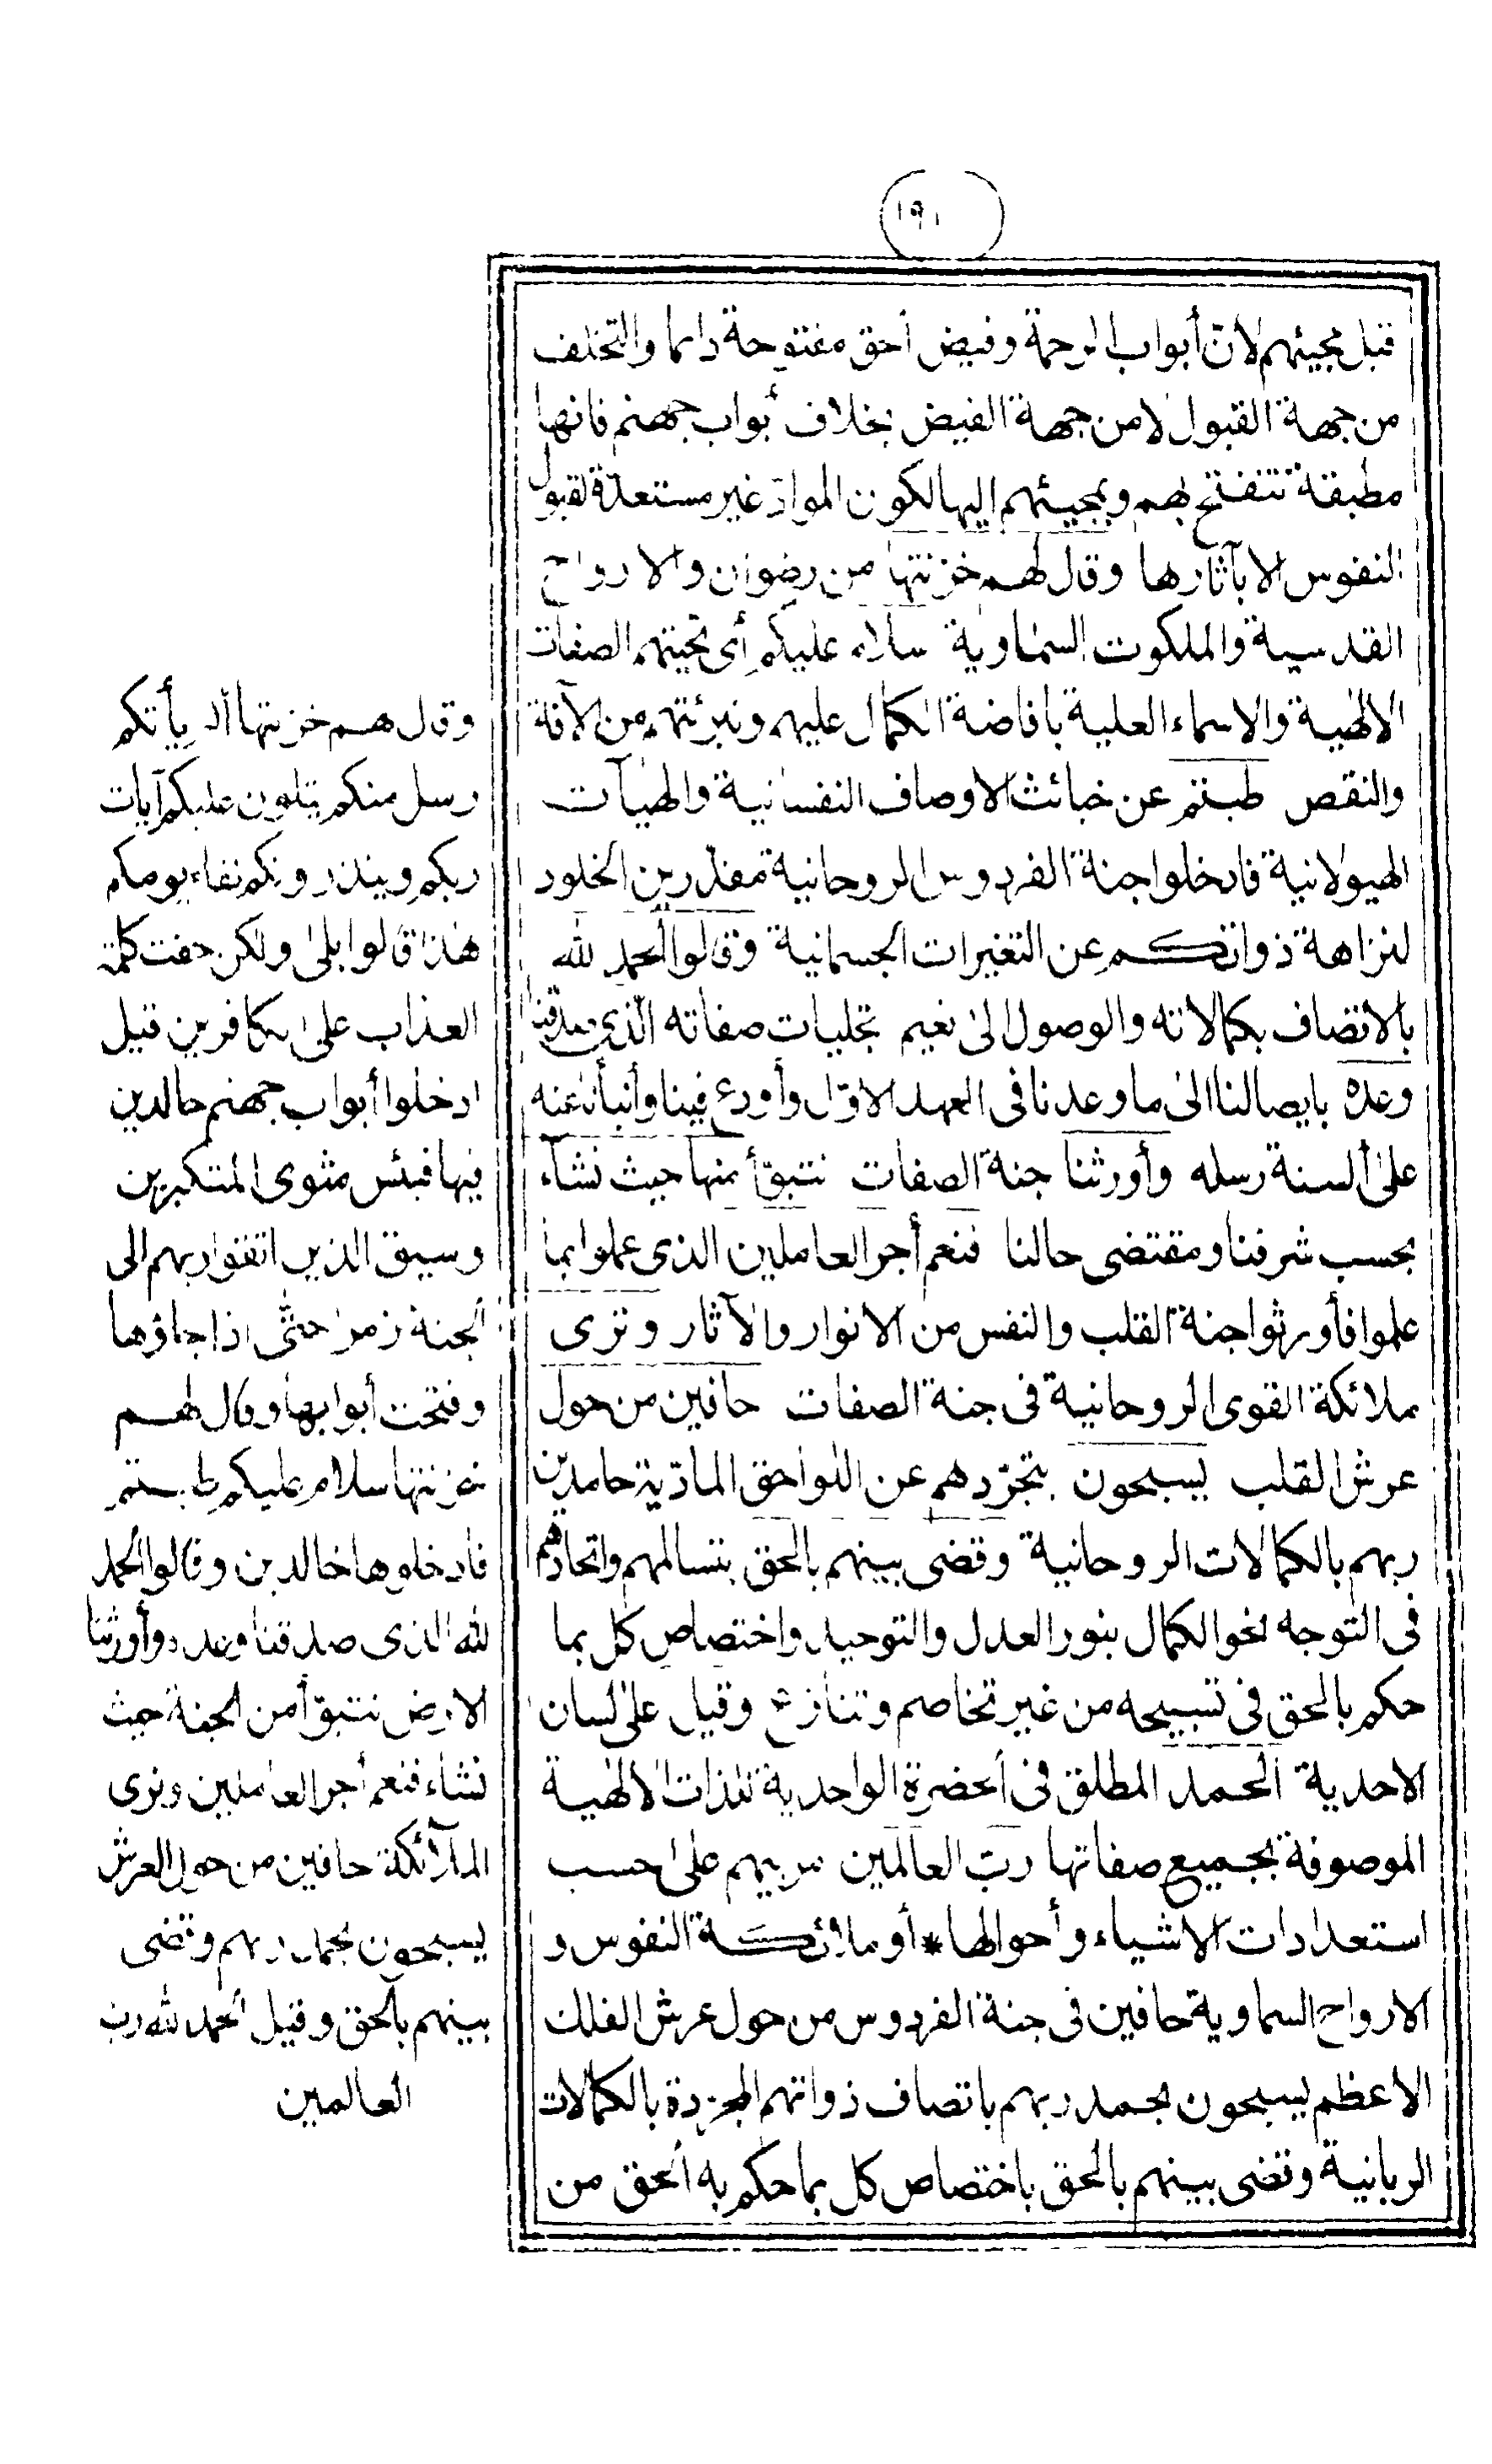 (١٩١)
قبل مجيئهم لان أبواب الرحمة وفيض الحق مفتوحة دائما والتخلف
من جهة القبول لا من جهة الفيض بخلاف أبواب جهنم فانها
مطبقة تنفتح بهم وبمجيئهم اليها لكون المواد غير مستعدة لقبول
النفوس الا بآثارها وقال لهم خزنتها من رضوان والارواح
القدسية والملكوت السماوية سلام عليكم أى تحيتهم الصفات
الالهية والاسماء العلية بافاضة الكمال عليهم وتبرئتهم من الآفة
والنقص طبتم عن خبائث الاوصاف النفسانية والهيآت
الهيولانية فادخلوا جنة الفردوس الروحانية مقدرين الخلود
لنزاهة ذواتكم عن التغيرات الجسمانية وقالوا الحمد لله
بالاتصاف بكمالاته والوصول الى نعيم تجليات صفاته الذى صدقنا
وعده بايصالنا الى ما وعدنا فى العهد الاوّل وأودع فينا وأنبأنا عنه
على ألسنة رسله وأورثنا جنة الصفات نتبوّأ منها حيث نشآء
بحسب شرفنا ومقتضى حالنا فنعم أجر العاملين الذى عملوا بما
علموا فأورثوا جنة القلب والنفس من الانوار والآثار وترى
ملائكة القوى الروحانية فى جنة الصفات حافين من حول
عرش القلب يسبحون بتجرّدهم عن اللواحق المادّية حامدين
ربهم بالكمالات الروحانية وقضى بينهم بالحق بتسالمهم واتحادهم
فى التوجه نحو الكمال بنور العدل والتوحيد واختصاص كل بما
حكم بالحق فى تسبيحه من غير تخاصم وتنازع وقيل على لسان
الاحدية الحمد المطلق فى الحضرة الواحدية للذات الالهية
الموصوفة بجميع صفاتها ربّ العالمين مربيهم على حسب
استعدادات الاشياء وأحوالها * أو ملائكة النفوس و
الارواح السماوية حافين فى جنة الفردوس من حول عرش الفلك
الاعظم يسبحون بحمد ربهم باتصاف ذواتهم المجرّدة بالكمالات
الربانية وقضى بينهم بالحق باختصاص كل بما حكم به الحق من
وقال لهم خزنتها ألم يأتكم
رسل منكم يتلون عليكم آيات
ربكم وينذرونكم لقاء يومكم
هذا قالوا بلى ولكن حقت كلمة
العذاب على الكافرين قيل
ادخلوا أبواب جهنم خالدين
فيها فبئس مثوى المتكبرين
وسيق الذين اتقوا ربهم الى
الجنة زمرا حتّى اذا جاؤها
وفتحت أبوابها وقال لهم
خزنتها سلام عليكم طبتم
فادخلوها خالدين وقالوا الحمد
لله الذى صدقنا وعده وأورثنا
الارض نتبوّأ من الجنة حيث
نشاء فنعم أجر العاملين وترى
الملآئكة حافين من حول العرش
يسبحون بحمد ربهم وقضى
بينهم بالحق وقيل الحمد لله رب
العالمين